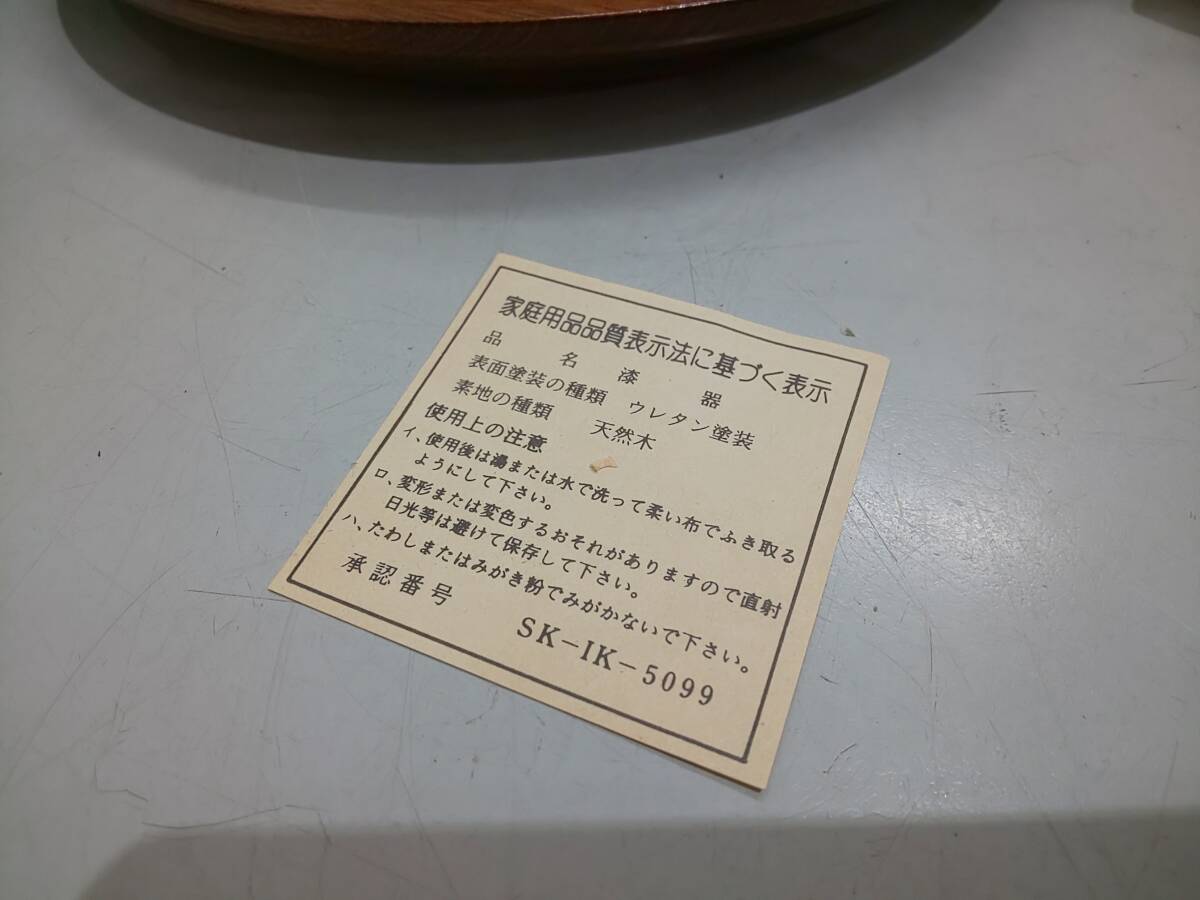 家庭用品品質表示法に基づく表示
品名 漆器
表面塗装の種類 ウレタン塗装
素地の種類 天然木
使用上の注意
イ、使用後は湯または水で洗って柔い布でふき取る
ようにして下さい。
ロ、変形または変色するおそれがありますので直射
日光等は避けて保存して下さい。
ハ、たわしまたはみがき粉でみがかないで下さい。
承認番号 SK-IK-5099